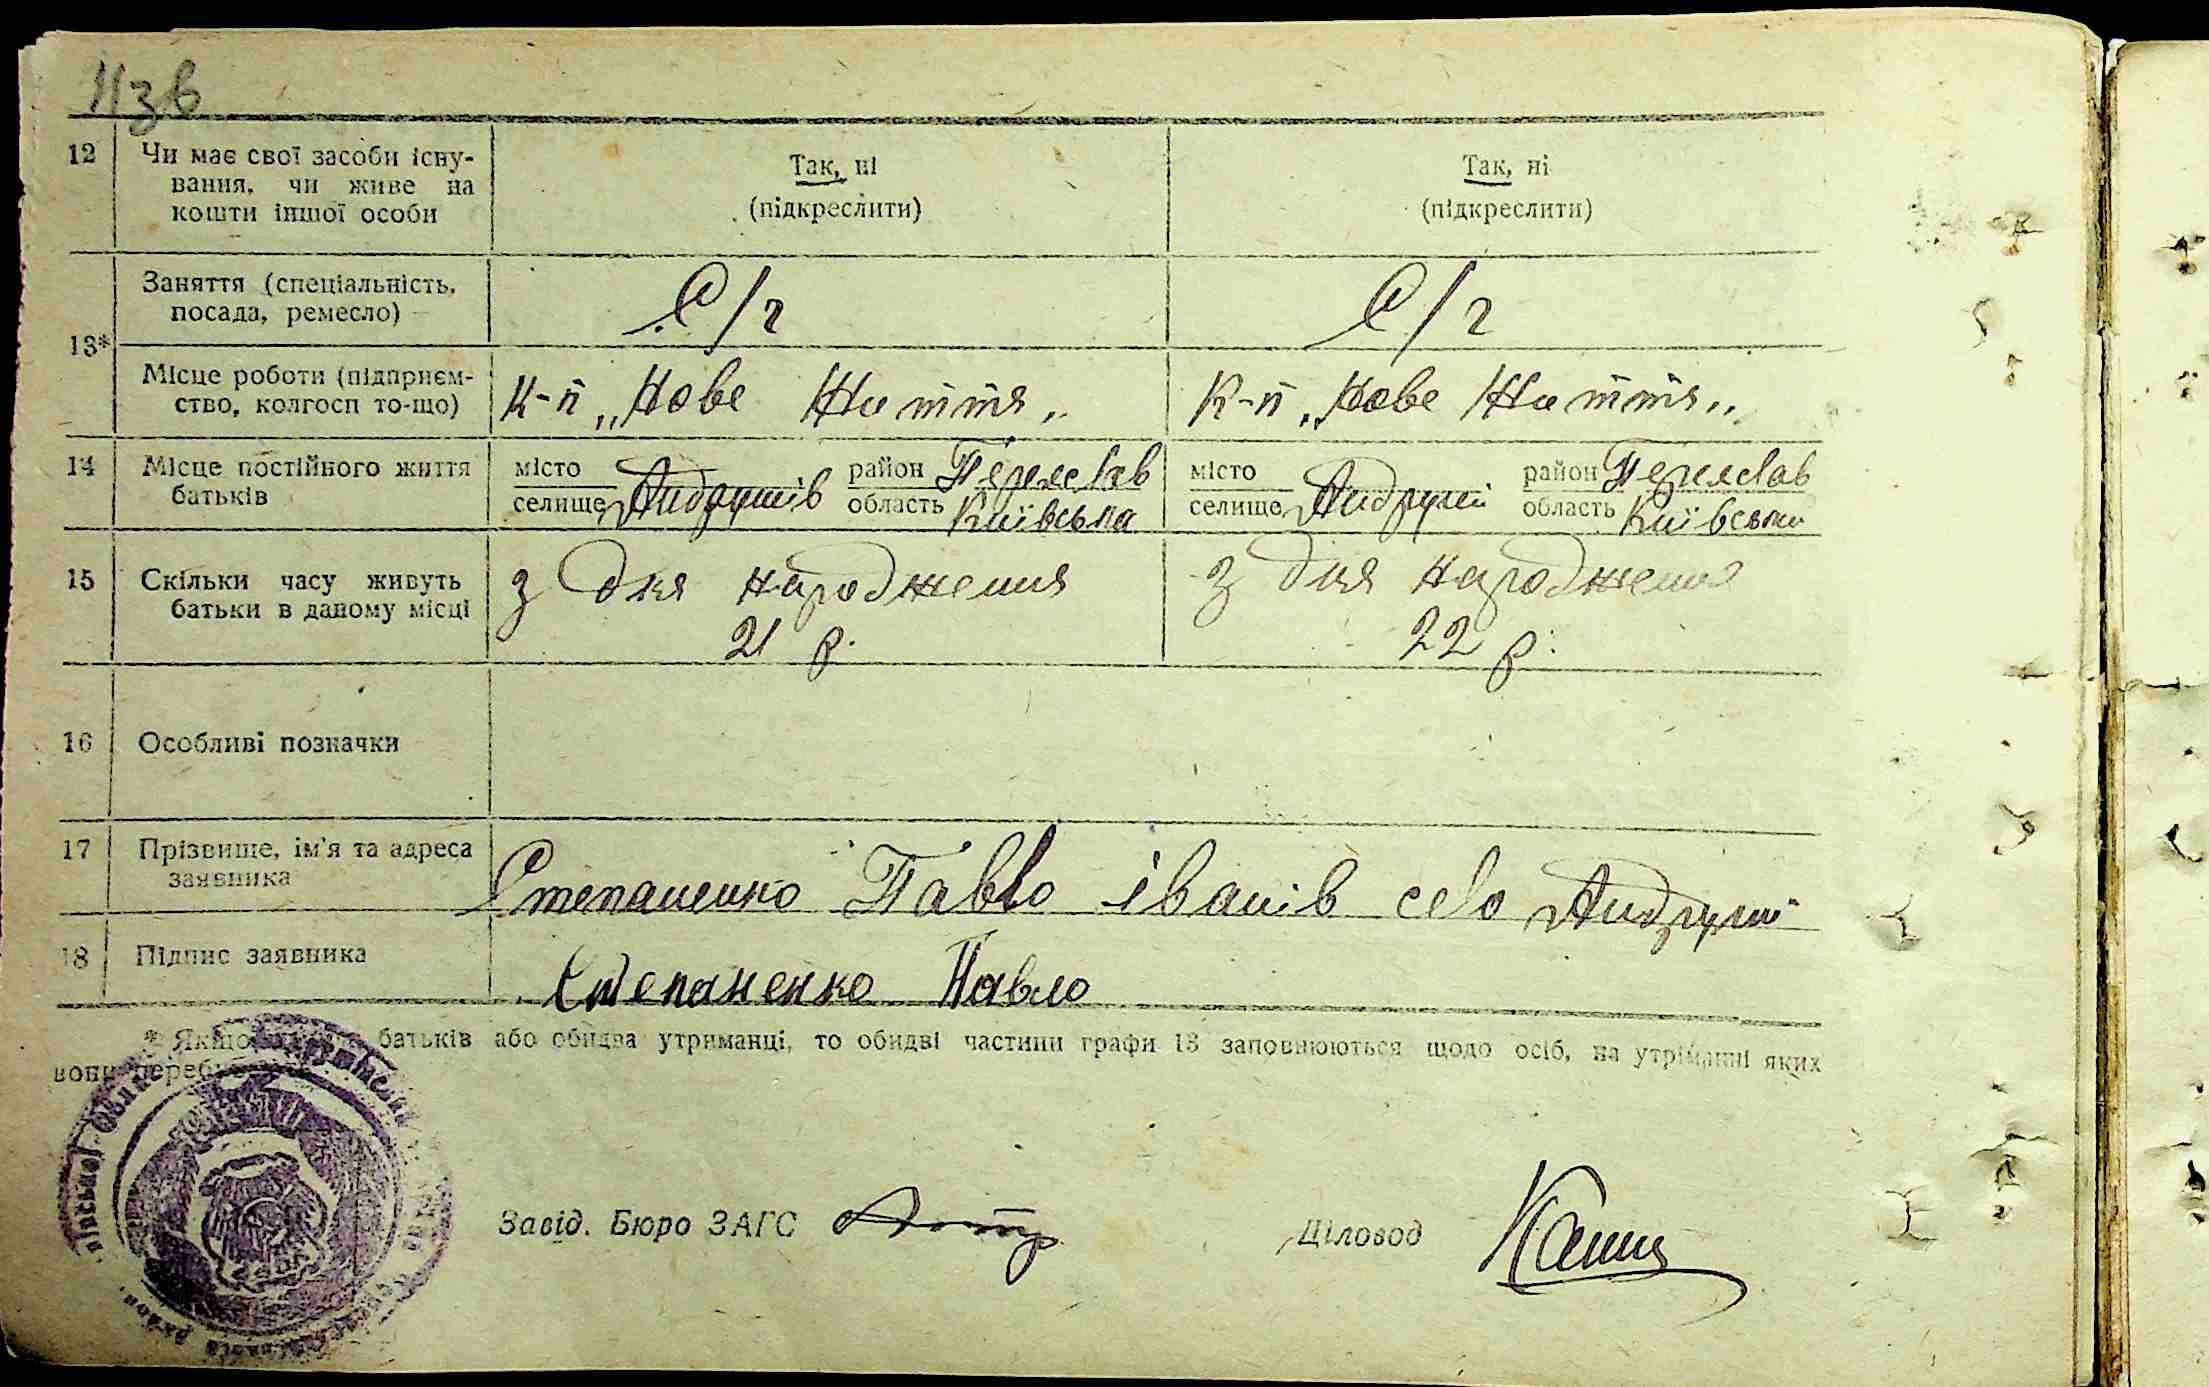 11зв
12 Чи має свої засоби існу-
вання, чи живе на
кошти іншої особи
Так, ні
(підкреслити)
Так, ні
(підкреслити)
13*
Заняття (спеціальність,
посада, ремесло)
С/г
С/г
Місце роботи (підприєм-
ство, колгосп то-що)
К-п „Нове Життя„
К-п „Нове Життя„
14 Місце постійного життя
батьків
місто
селище Андрушів
район Переяслав
область Київська
місто
селище Андруші
район Переяслав
область Київська
15 Скільки часу живуть
батьки в даному місці
з дня народження
21 р.
з дня народження
22 р.
16 Особливі позначки
17 Прізвище, ім'я та адреса
заявника
Степаненко Павло іванів село Андруші
18 Підпис заявника
Степаненко Павло
* Якщо батьків або обидва утриманці, то обидві частини графи 13 заповнюються щодо осіб, на утриманні яких
вони
Завід. Бюро ЗАГС
Діловод